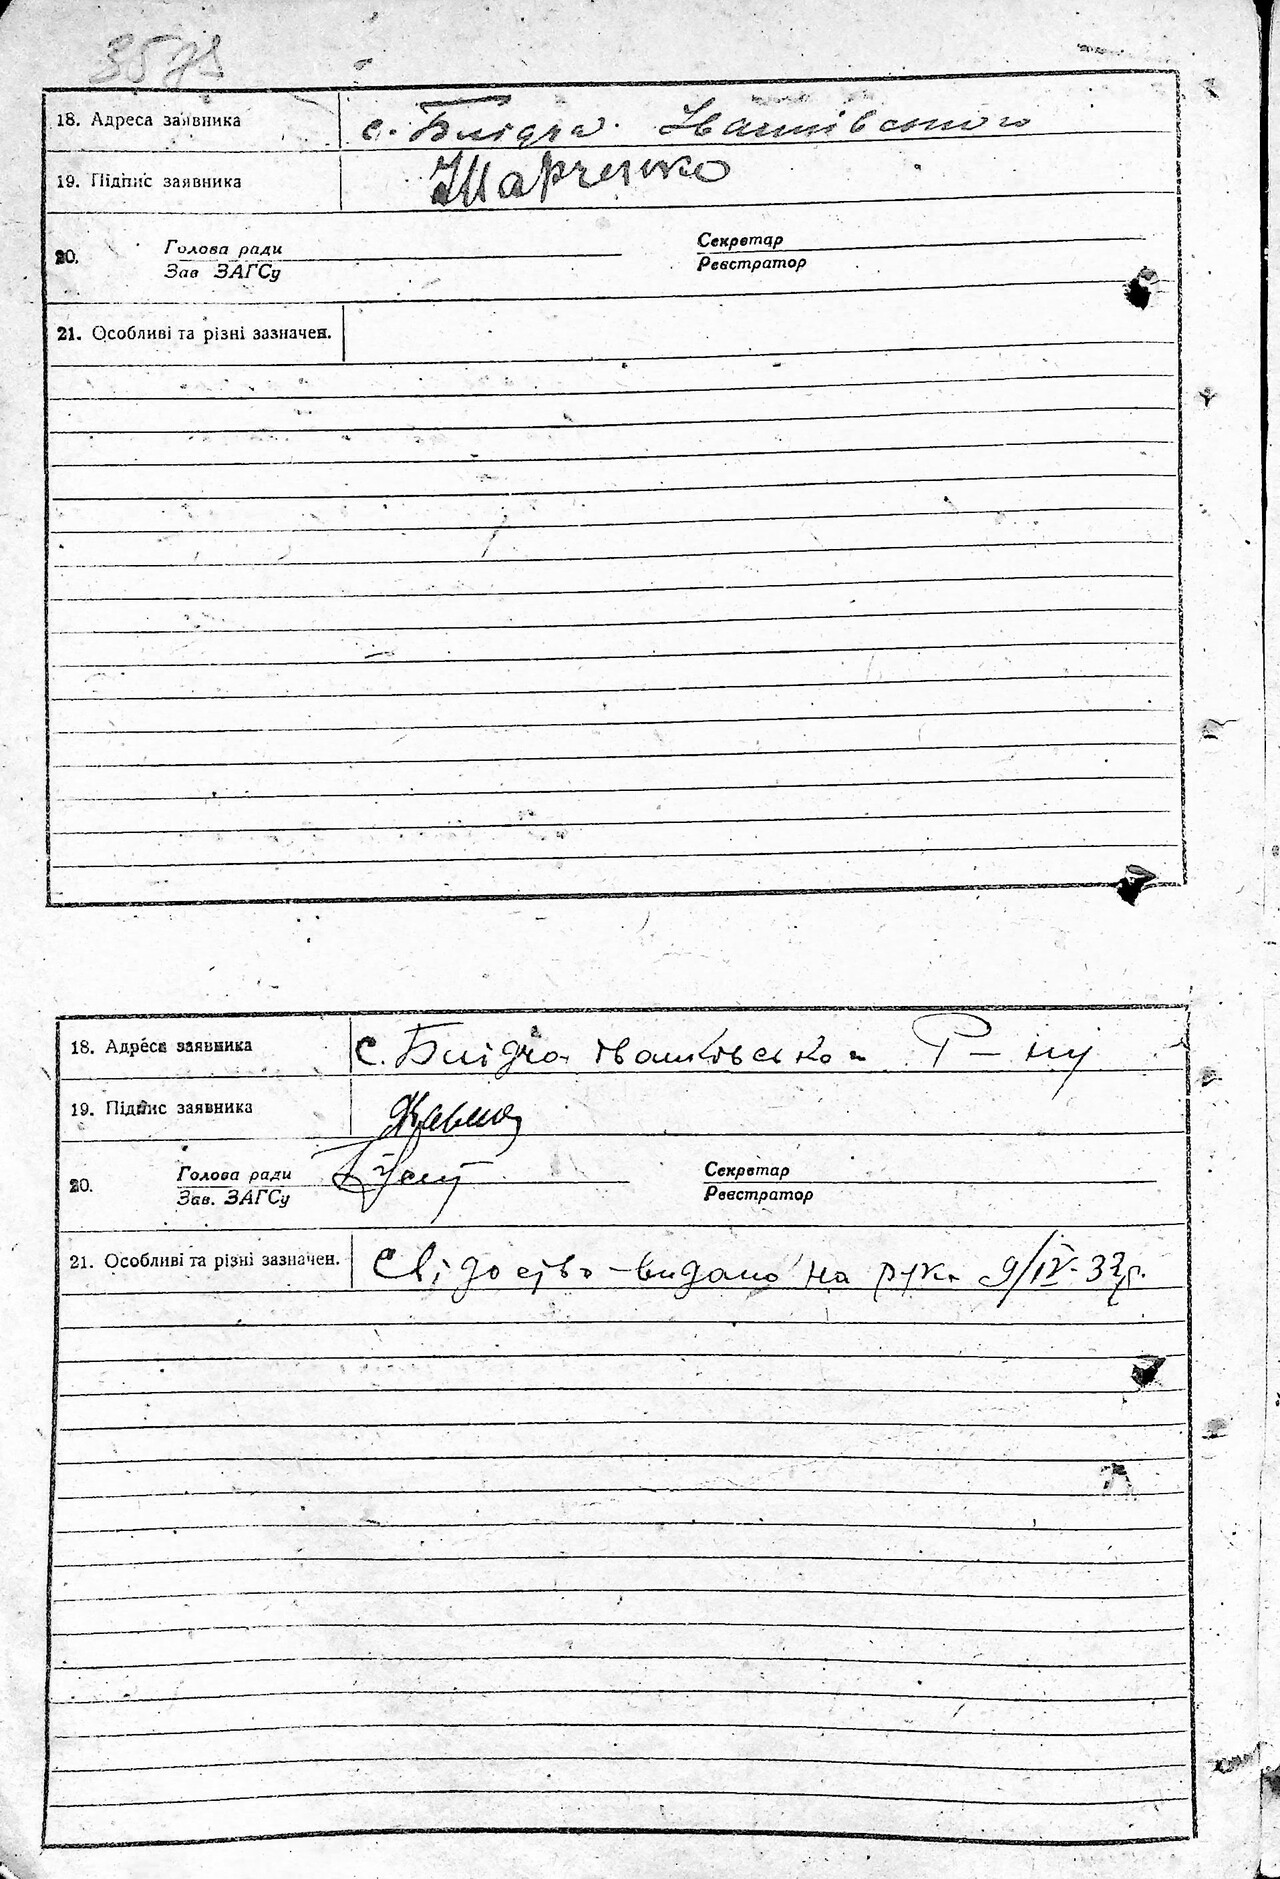 18. Адреса заявника с. Блідча Іванківського
19. Підпис заявника Марченко
20. Голова ради Секретар
Зав ЗАГСу Реєстратор
21. Особливі та різні зазначен.
18. Адреса заявника с. Блідча Іванківсько Р-ну
19. Підпис заявника
20. Голова ради Секретар
Зав. ЗАГСу Реєстратор
21. Особливі та різні зазначен. Свідоцтво видано на рук. 9/IV-33р.